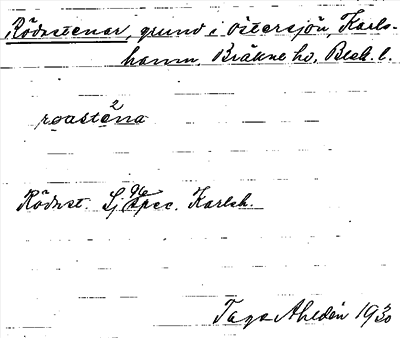 Rödstenar, grund i Östersjön, Karls-
hamn, Bräkne hd, Blek. l.
2
roastena
Rödst. Sj 96 spec. Karlsh.
Tage Ahldén 1930